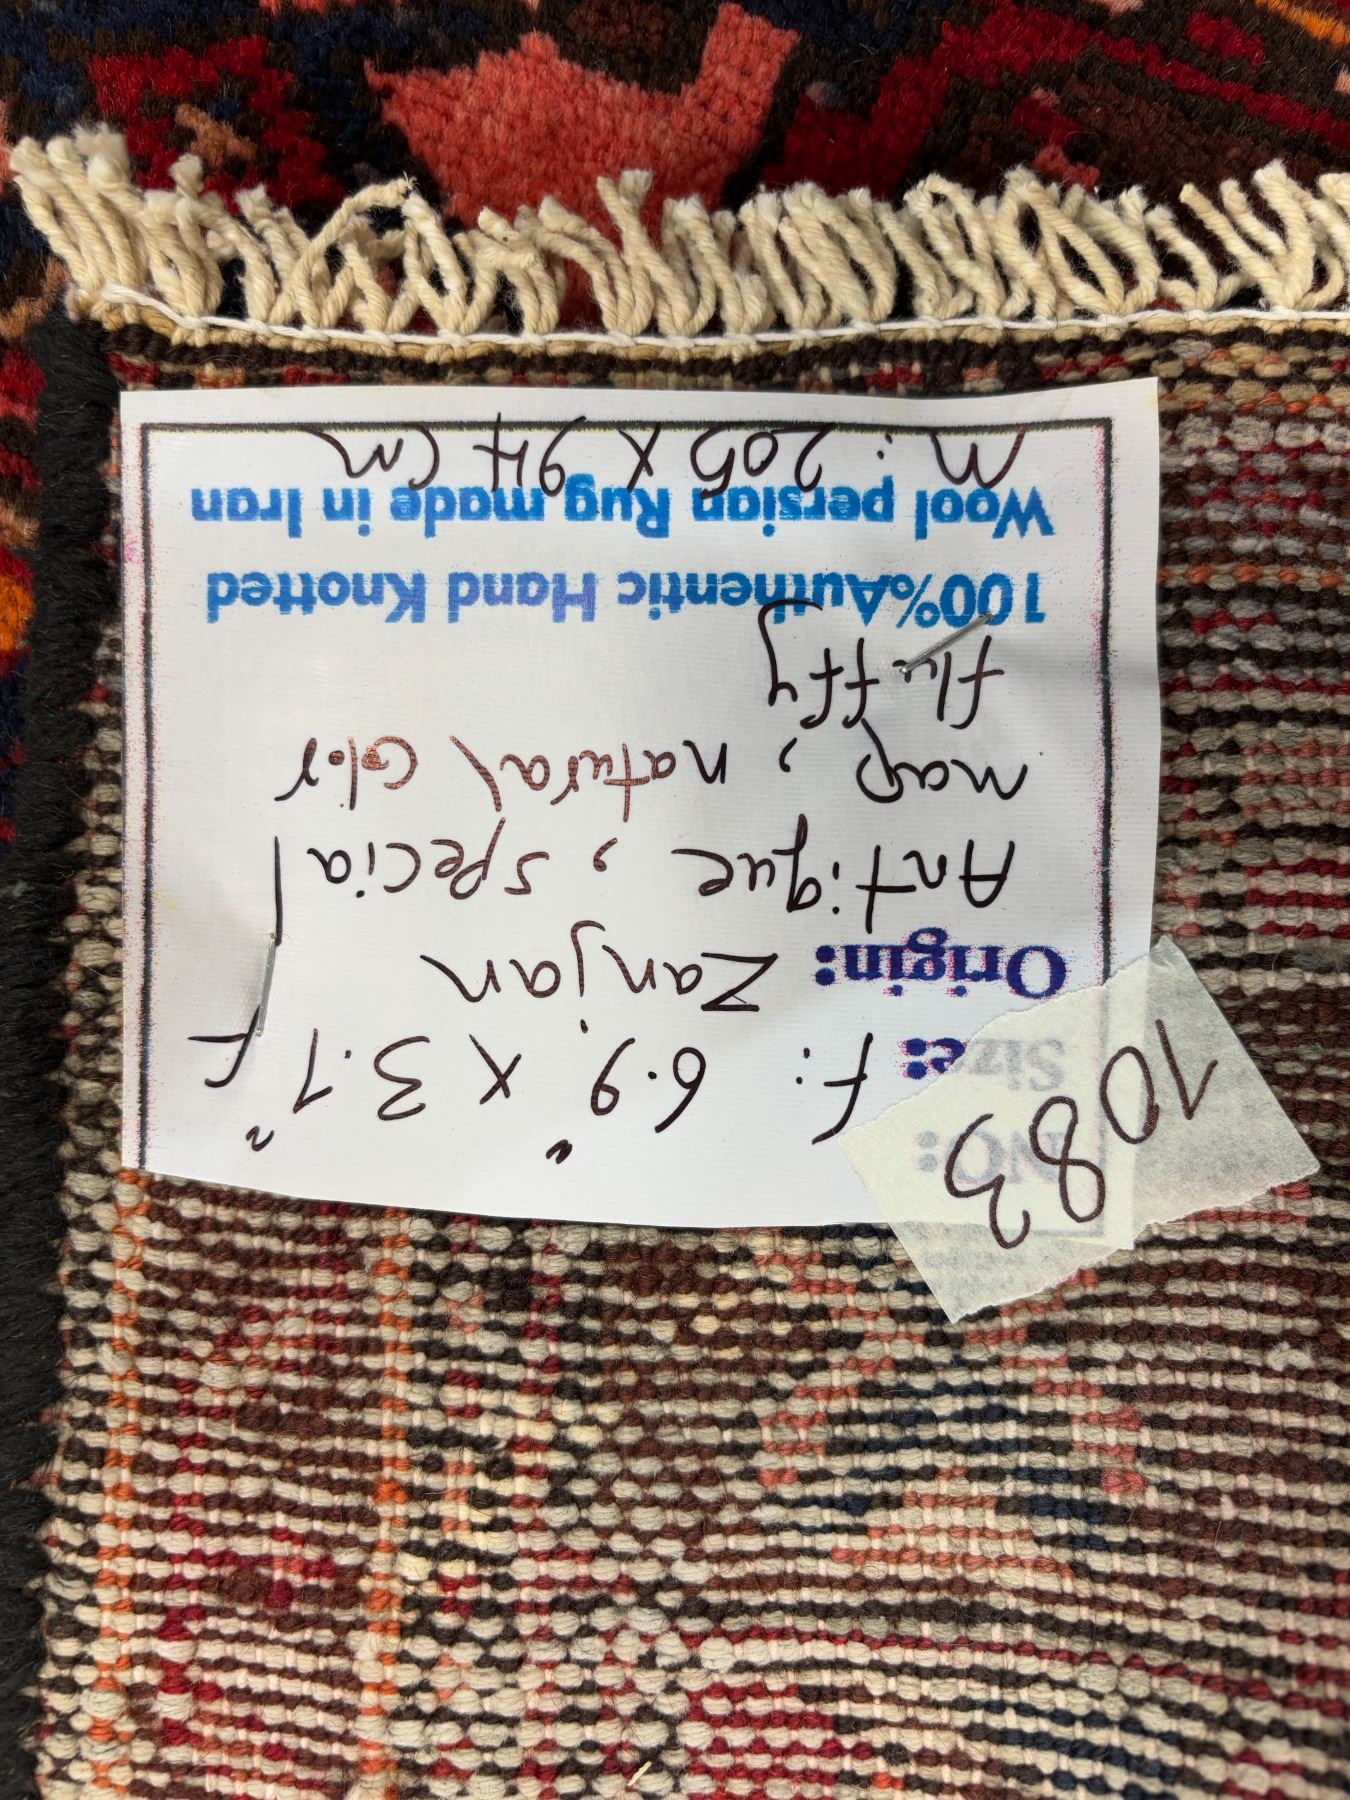 1083
NO:
Size: f: 6.9" x 3.1" F
Origin: Zanjan
Antique, special
map, natural color
fluffy
100%Authentic Hand Knotted
Wool persian Rug made in Iran
m: 205 x 94 cm